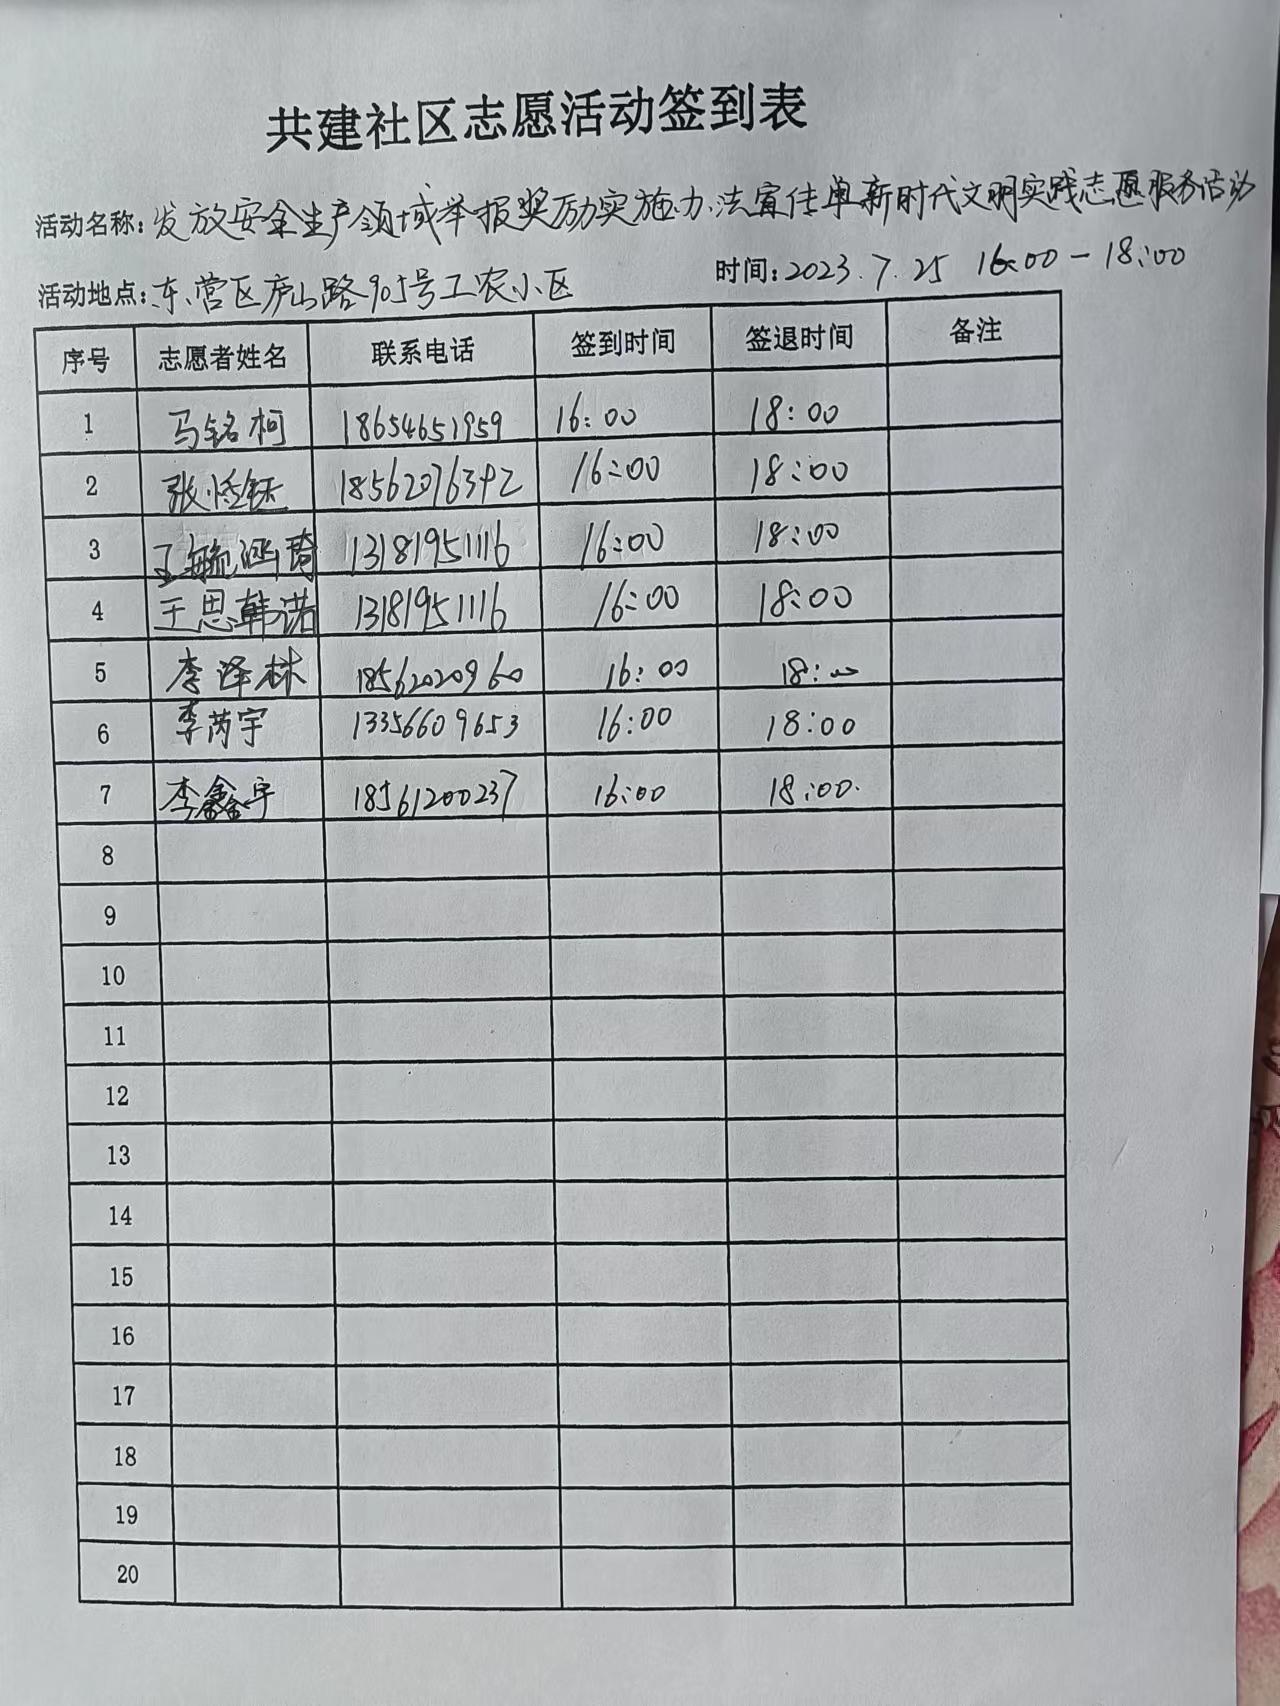 共建社区志愿活动签到表
活动名称：发放安全生产领域举报奖励实施办法宣传单新时代文明实践志愿服务活动
活动地点：东营区庐山路905号工农小区 时间：2023.7.25 16:00-18:00
序号 志愿者姓名 联系电话 签到时间 签退时间 备注
1 马铭柯 18654651959 16:00 18:00
2 张恬钰 18562076392 16:00 18:00
3 王毓涵琦 13181951116 16:00 18:00
4 王思韩诺 13181951116 16:00 18:00
5 李泽林 18562020960 16:00 18:00
6 李芮宇 13356609653 16:00 18:00
7 李鑫宇 18561200237 16:00 18:00
8
9
10
11
12
13
14
15
16
17
18
19
20